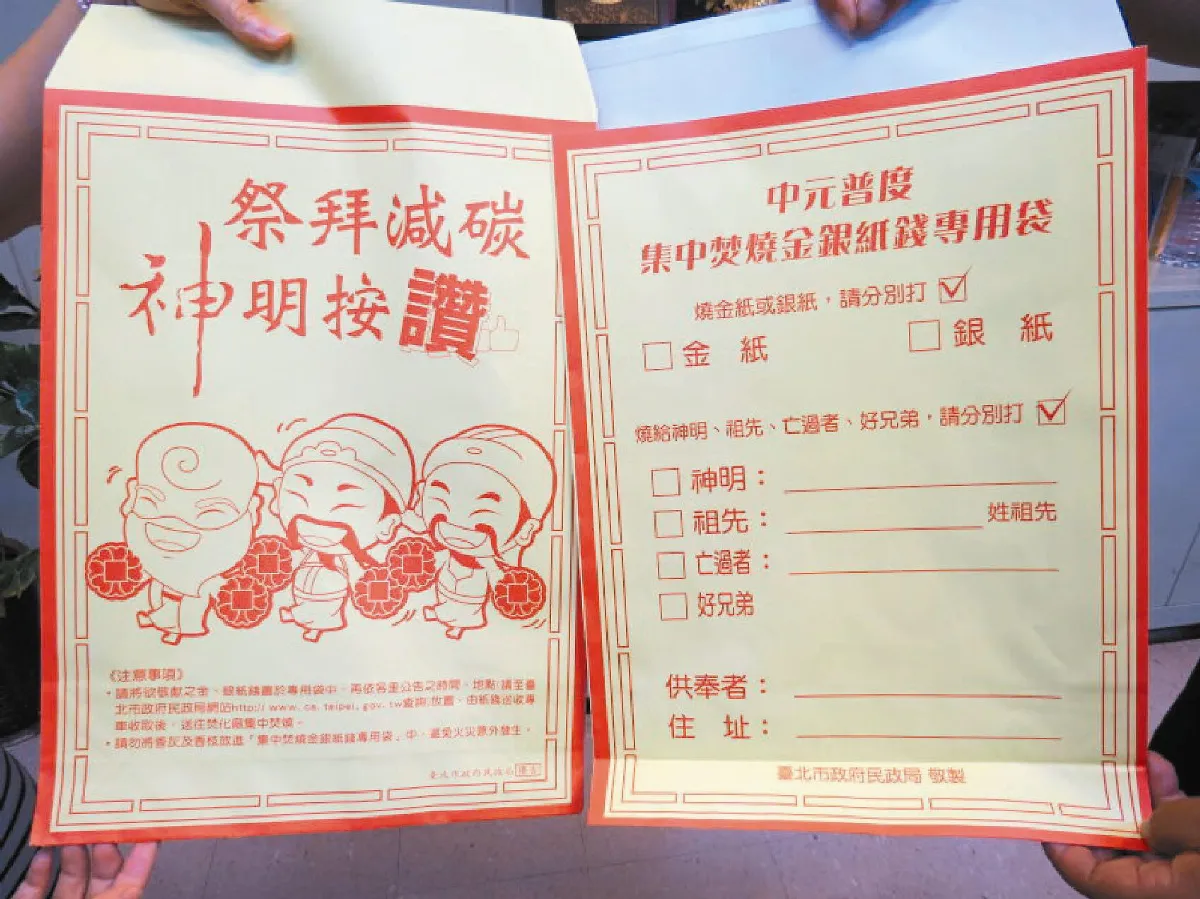 祭拜減碳
神明按讚
《注意事項》
•請將欲敬獻之金、銀紙錢置於專用袋中，再依各里公告之時間、地點(請至臺
北市政府民政局網站http://www.ca.taipei.gov.tw查詢)放置，由紙錢送收專
車收取後，送往焚化廠集中焚燒。
•請勿將香灰及香枝放進「集中焚燒金銀紙錢專用袋」中，避免火災意外發生。
臺北市政府民政局 廣告
中元普度
集中焚燒金銀紙錢專用袋
燒金紙或銀紙，請分別打 ☑
□ 金 紙 □ 銀 紙
燒給神明、祖先、亡過者、好兄弟，請分別打 ☑
□ 神明：
□ 祖先： 姓祖先
□ 亡過者：
□ 好兄弟
供奉者：
住 址：
臺北市政府民政局 敬製